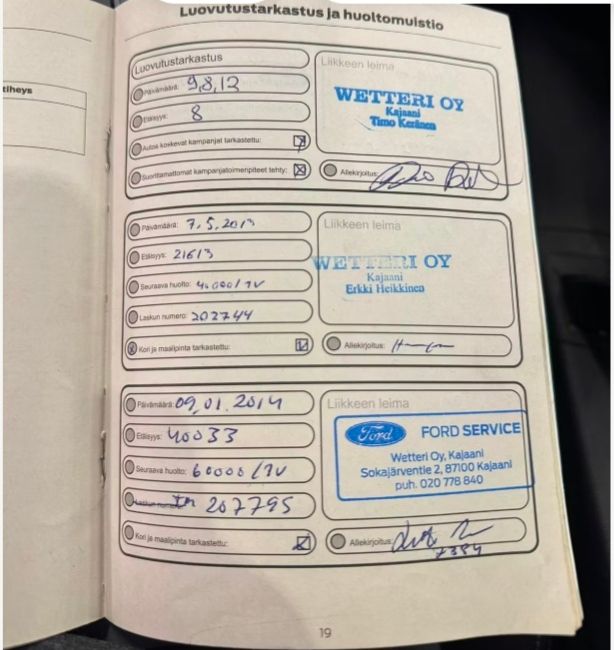 Luovutustarkastus ja huoltomuistio
tiheys
Luovutustarkastus
Päivämäärä: 9,8,12
Etäisyys: 8
Autoa koskevat kampanjat tarkastettu:
Suorittamattomat kampanjatoimenpiteet tehty:
Liikkeen leima
WETTERI OY
Kajaani
Timo Keränen
Allekirjoitus:
Päivämäärä: 7.5.2013
Etäisyys: 21613
Seuraava huolto: 40000/1V
Laskun numero: 202744
Kori ja maalipinta tarkastettu:
Liikkeen leima
WETTERI OY
Kajaani
Erkki Heikkinen
Allekirjoitus:
Päivämäärä: 09.01.2014
Etäisyys: 40033
Seuraava huolto: 60000/1V
Laskun numero 207795
Kori ja maalipinta tarkastettu:
Liikkeen leima
Ford FORD SERVICE
Wetteri Oy, Kajaani
Sokajärventie 2, 87100 Kajaani
puh. 020 778 840
Allekirjoitus:
19